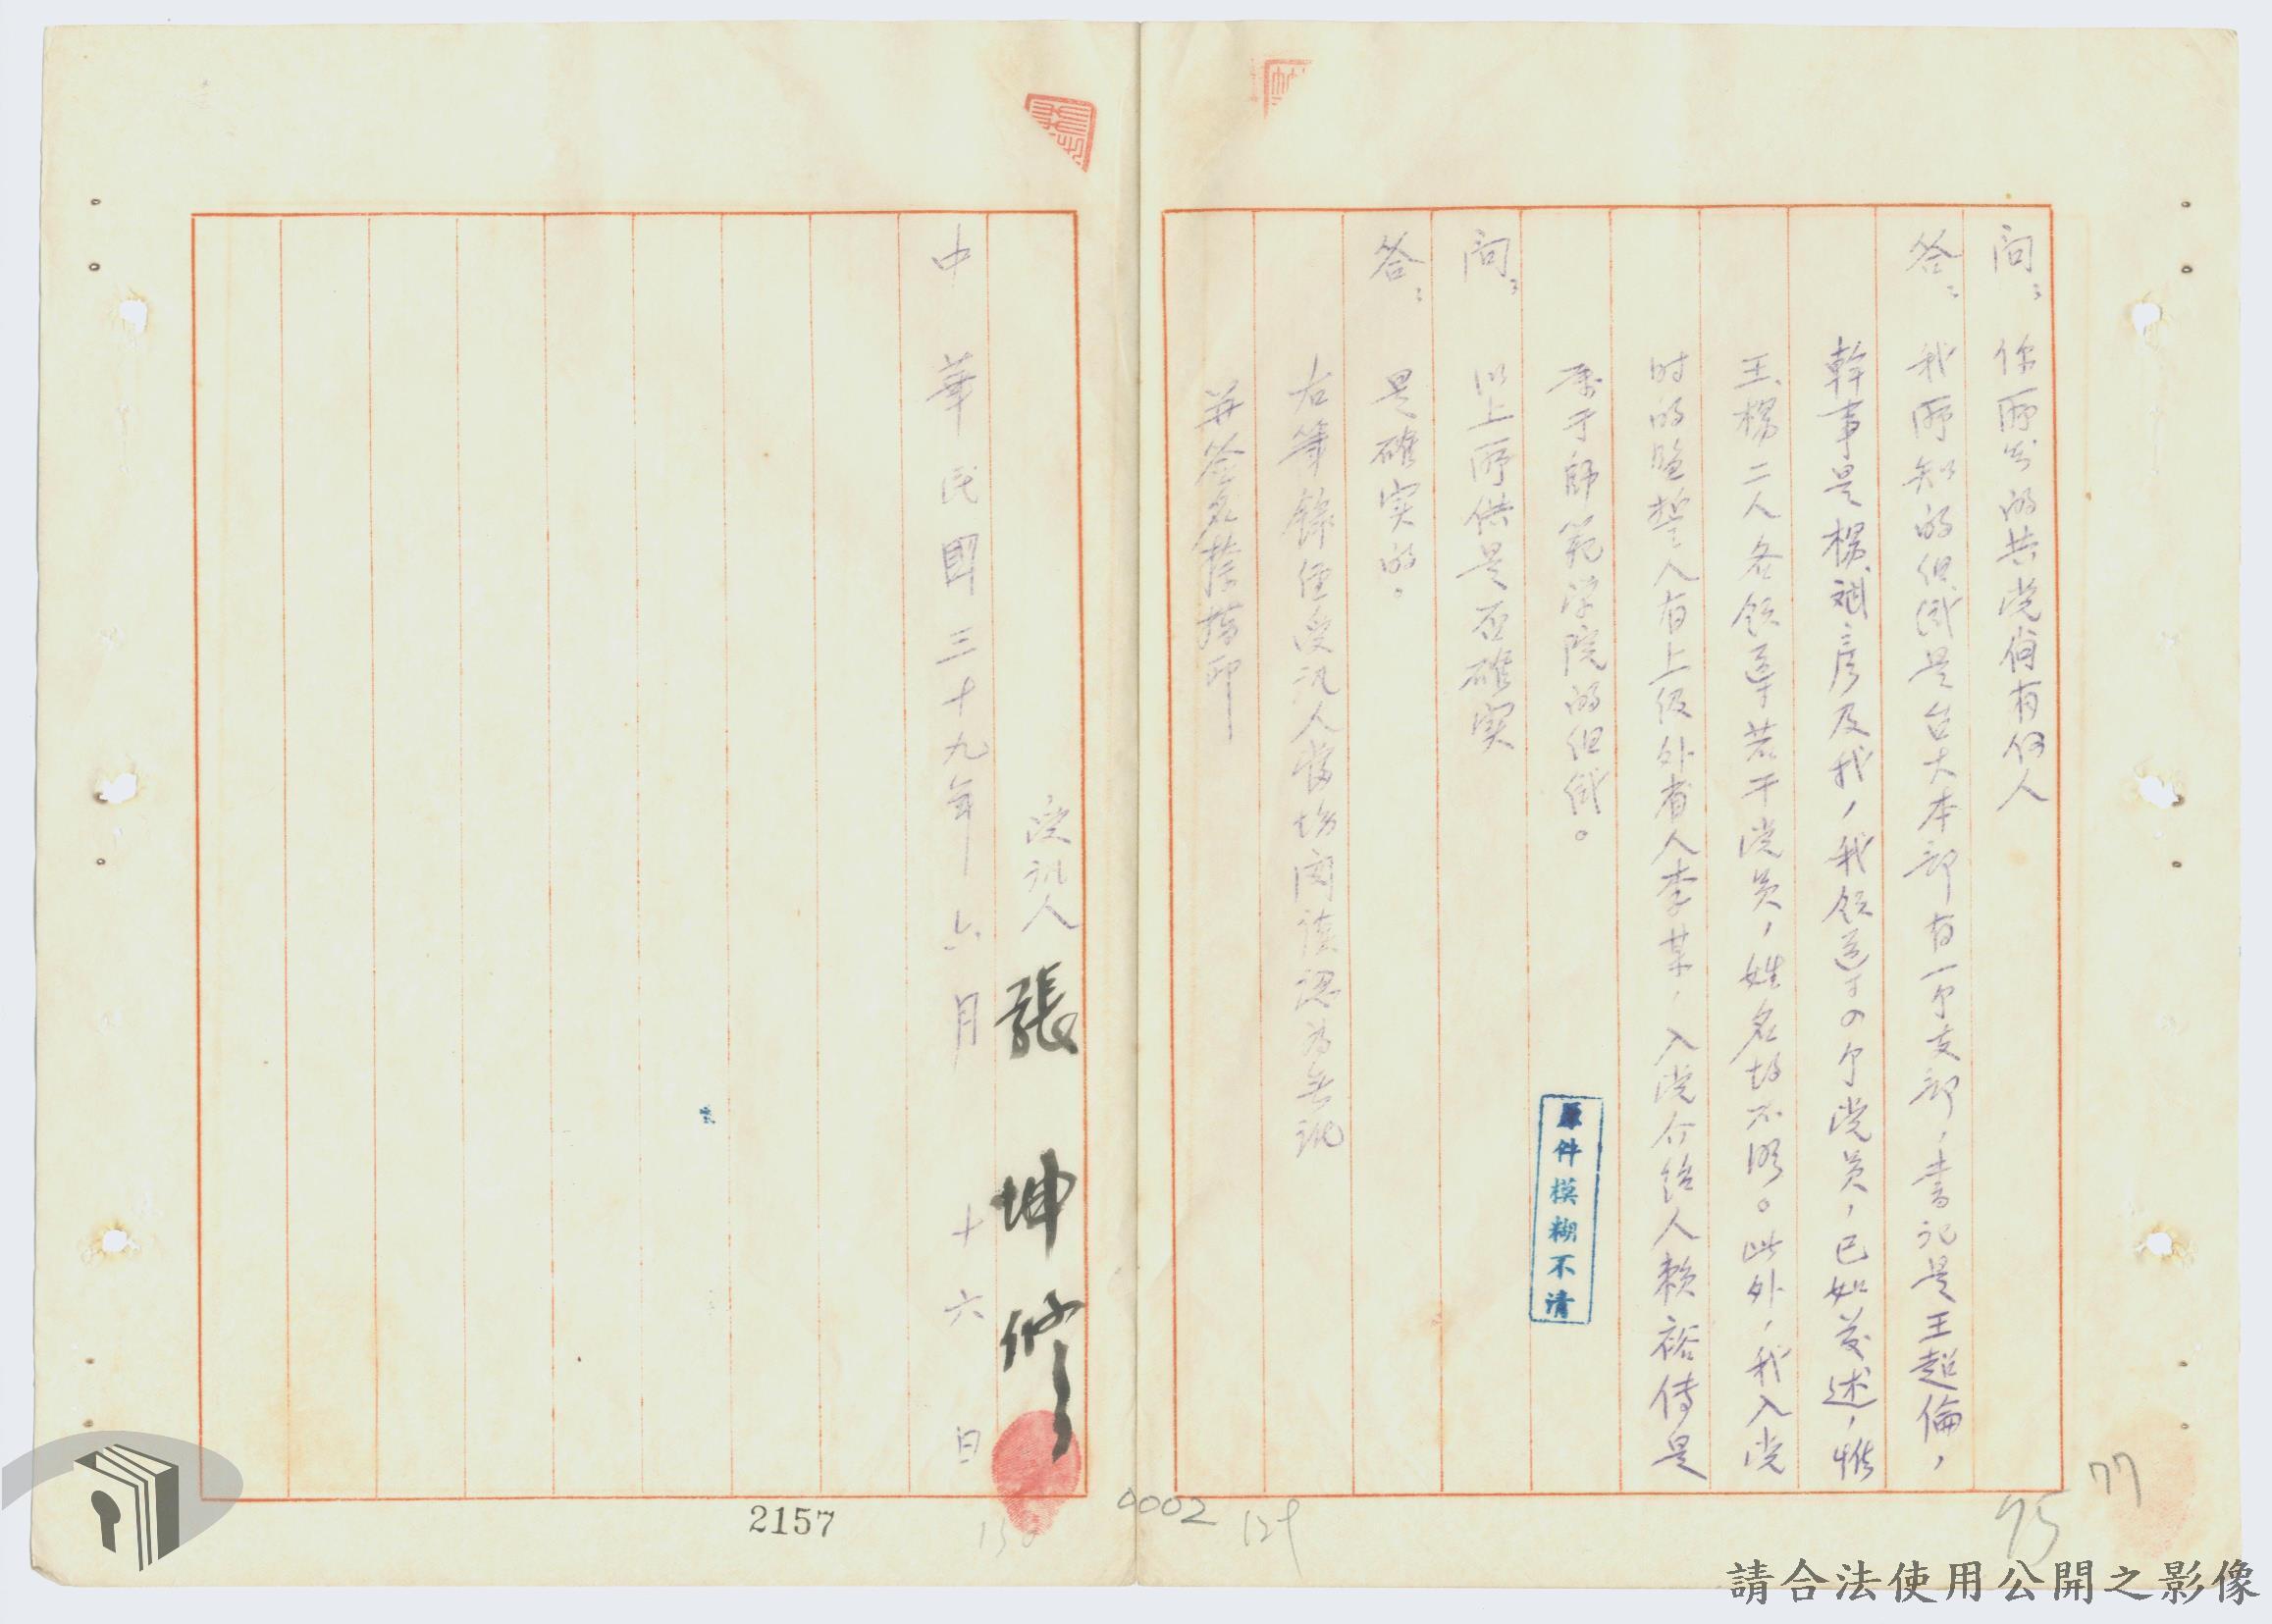 問：你所知的共党尚有何人
答：我所知的组织是台大本部有一个支部，書记是王超倫，
幹事是楊斌彦及我，我領導の个党員，已如前述，惟
王、楊二人各領導若干党員，姓名均不明。此外，我入党
时的監誓人有上级外省人李某，入党介绍人賴裕傳是
属于師範学院的组织。
問：以上所供是否確实
答：是確实的。
右筆錄经受讯人當場閱讀認為無訛
并签名捺指印
受訊人 張坤修
中華民國三十九年六月十六日
原件模糊不清
2157
0002
129
130
75
77
請合法使用公開之影像